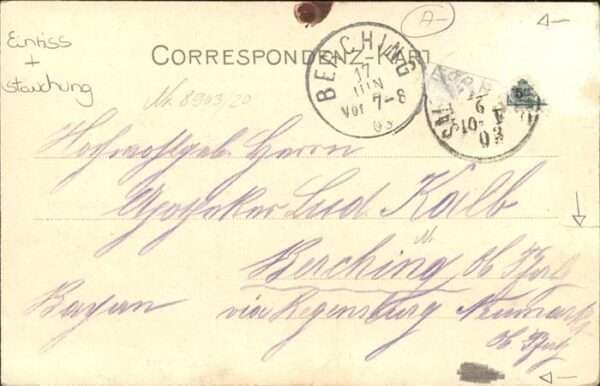 A-
Einriss
+
Stauchung
CORRESPONDENZ-KART
BERCHING
17
JUN
Vor. 7-8
03
Nr. 8903/20
Hochwohlgeb. Herrn
Apotheker Lud. Kalb
Berching Ob Pfalz
Bayern via Regensburg Neumarkt
Ob Pfalz